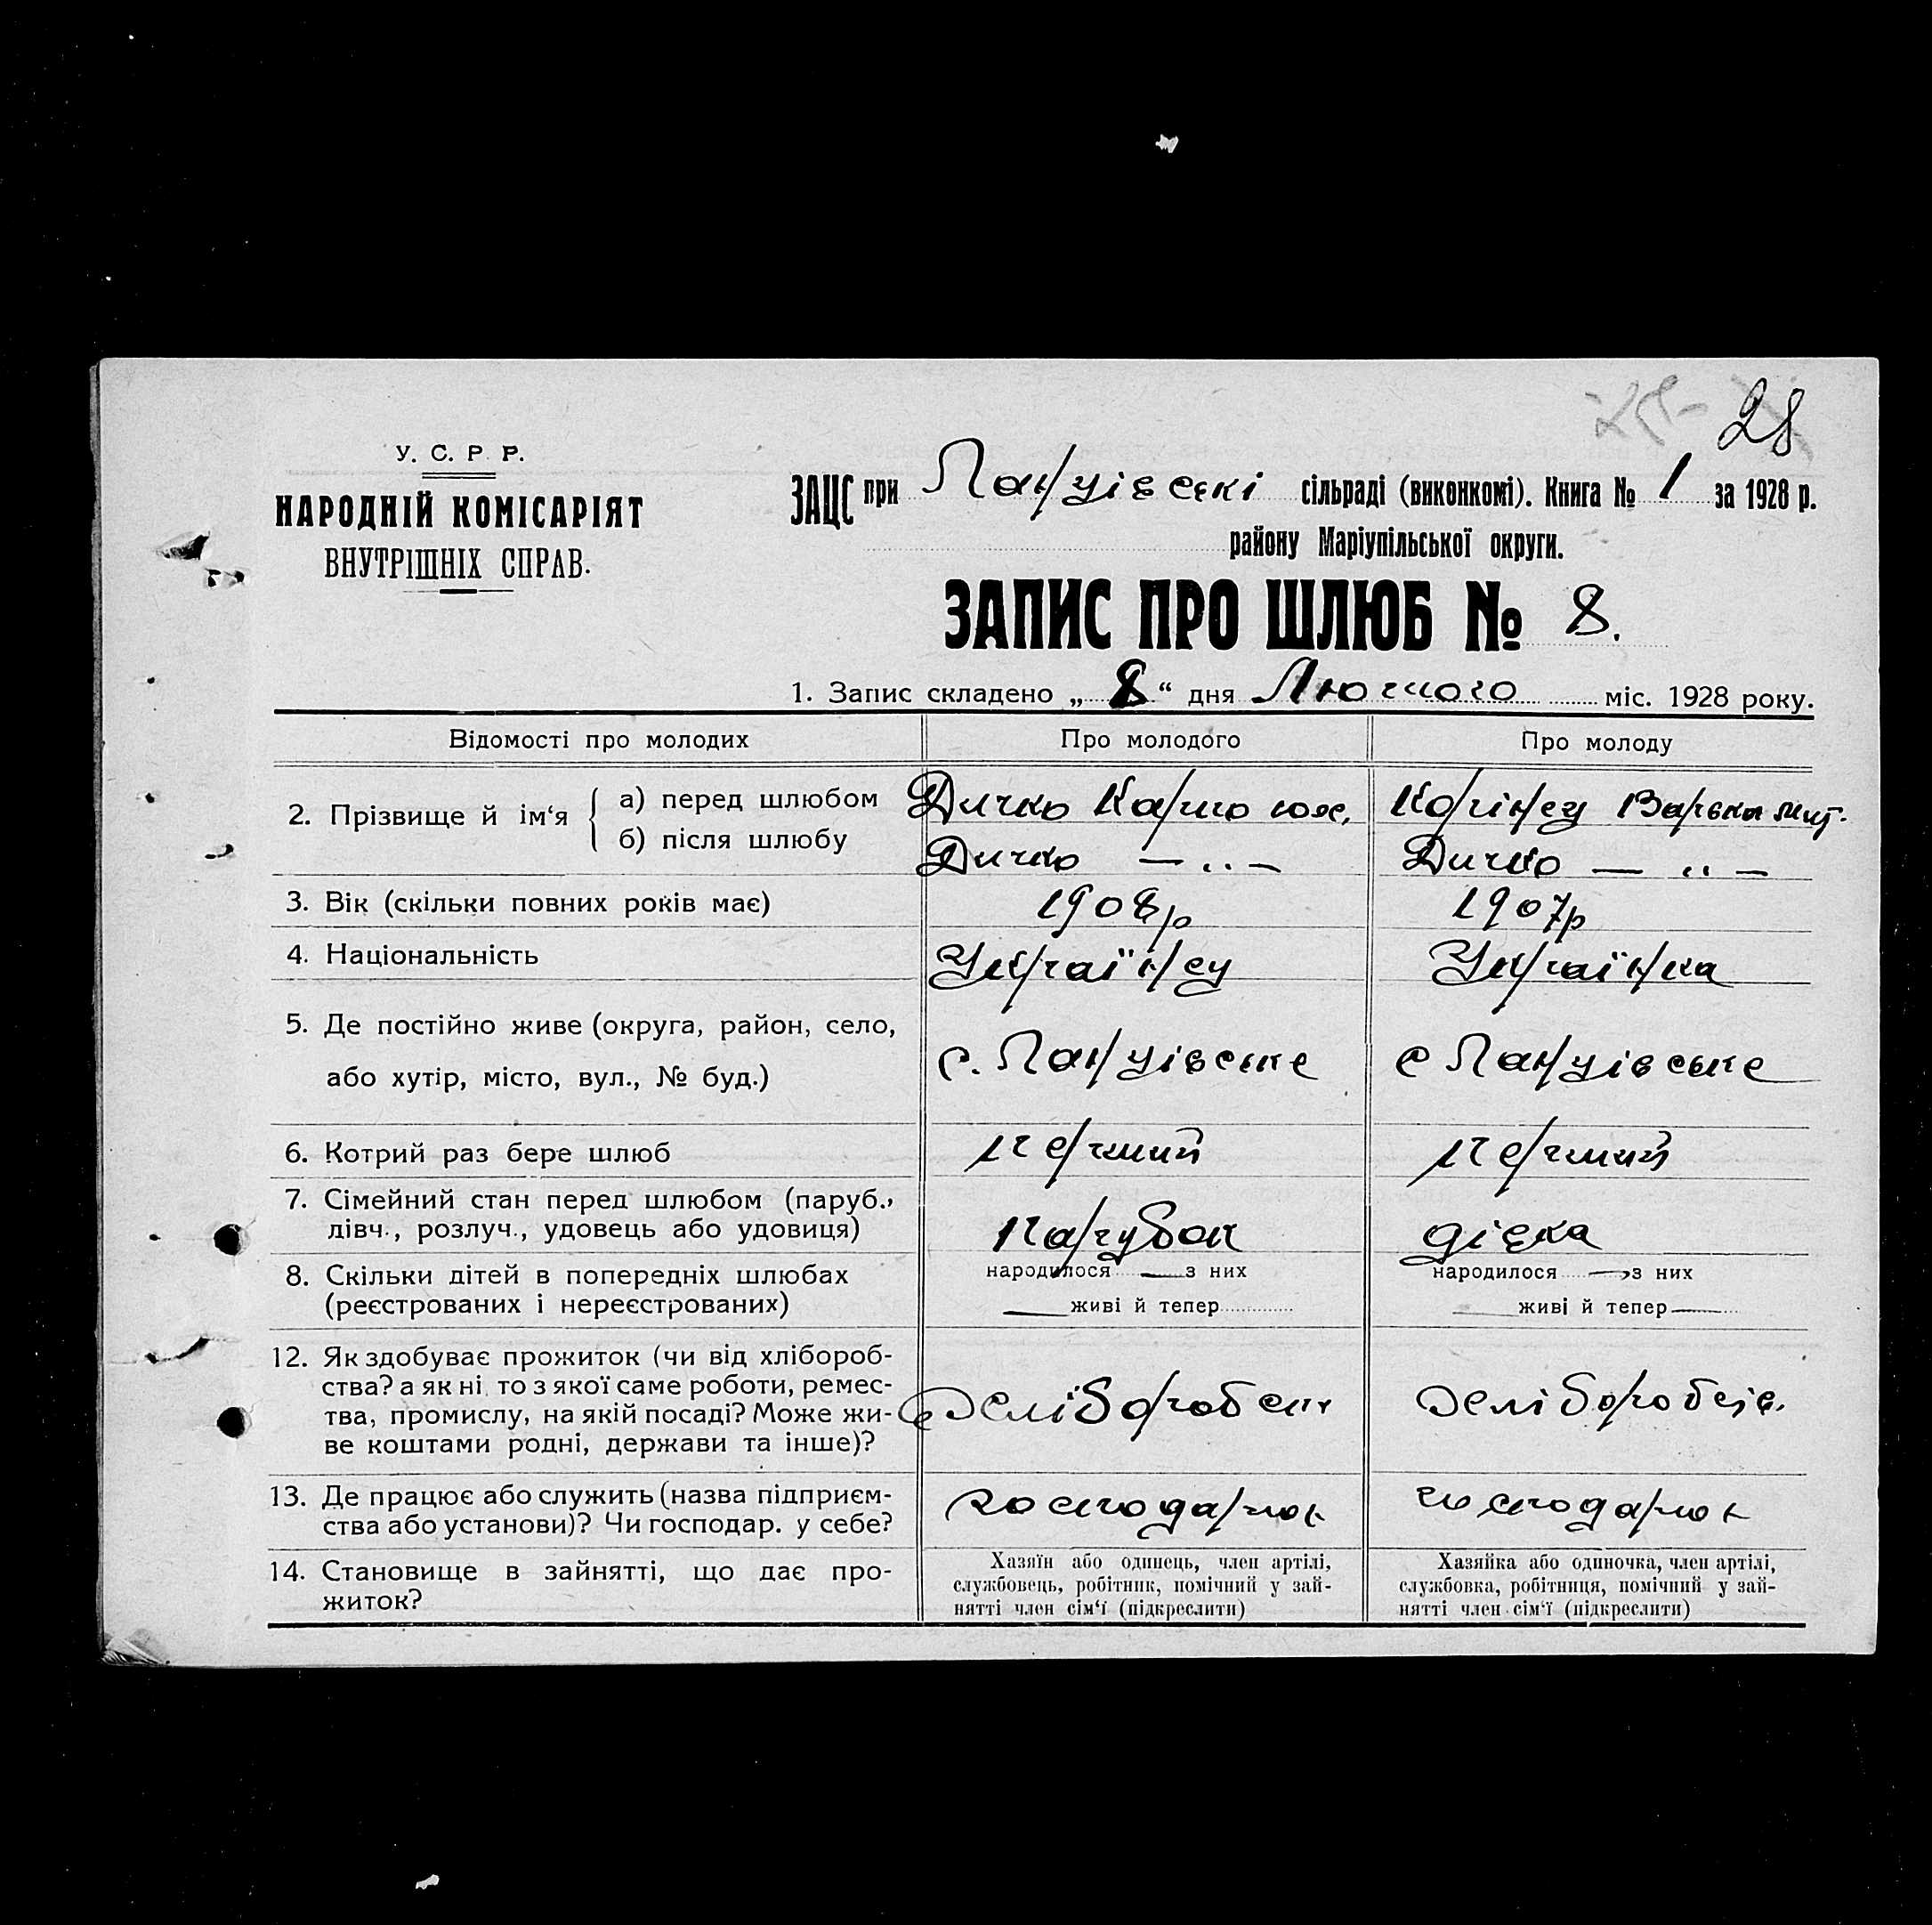 28
У. С. Р. Р.
НАРОДНІЙ КОМІСАРІЯТ
ВНУТРІШНІХ СПРАВ.
ЗАЦС при Ланцівскі сільраді (виконкомі). Книга № 1 за 1928 р.
району Маріупільської округи.
ЗАПИС ПРО ШЛЮБ № 8.
1. Запис складено „ 8 “ дня Лютого міс. 1928 року.
Відомості про молодих Про молодого Про молоду
2. Прізвище й ім‘я { а) перед шлюбом Дичко Карпо Варька
б) після шлюбу Дичко — „ — Дичко — „ —
3. Вік (скільки повних років має) 1908р 1907р
4. Національність Українец Українка
5. Де постійно живе (округа, район, село, с. Ланцівське с Ланцівське
або хутір, місто, вул., № буд.)
6. Котрий раз бере шлюб перший перший
7. Сімейний стан перед шлюбом (паруб., парубок дівка
дівч., розлуч., удовець або удовиця)
8. Скільки дітей в попередніх шлюбах народилося — з них народилося — з них
(реєстрованих і нереєстрованих) — живі й тепер живі й тепер —
12. Як здобуває прожиток (чи від хлібороб-
ства? а як ні, то з якої саме роботи, ремес-
тва, промислу, на якій посаді? Може жи- хлібороб
ве коштами родні, держави та інше)?
13. Де працює або служить (назва підприєм-
ства або установи)? Чи господар. у себе?
14. Становище в зайнятті, що дає про- Хазяїн або одинець, член артілі, Хазяйка або одиночка, член артілі,
житок? службовець, робітник, помічний у зай- службовка, робітниця, помічний у зай-
нятті член сім‘ї (підкреслити) нятті член сім‘ї (підкреслити)